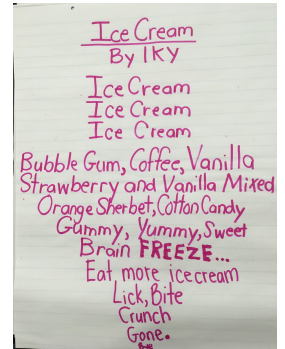 Ice Cream
By IKY
Ice Cream
Ice Cream
Ice Cream
Bubble Gum, Coffee, Vanilla
Strawberry and Vanilla Mixed
Orange Sherbet, Cotton Candy
Gummy, Yummy, Sweet
Brain FREEZE...
Eat more icecream
Lick, Bite
Crunch
Gone.